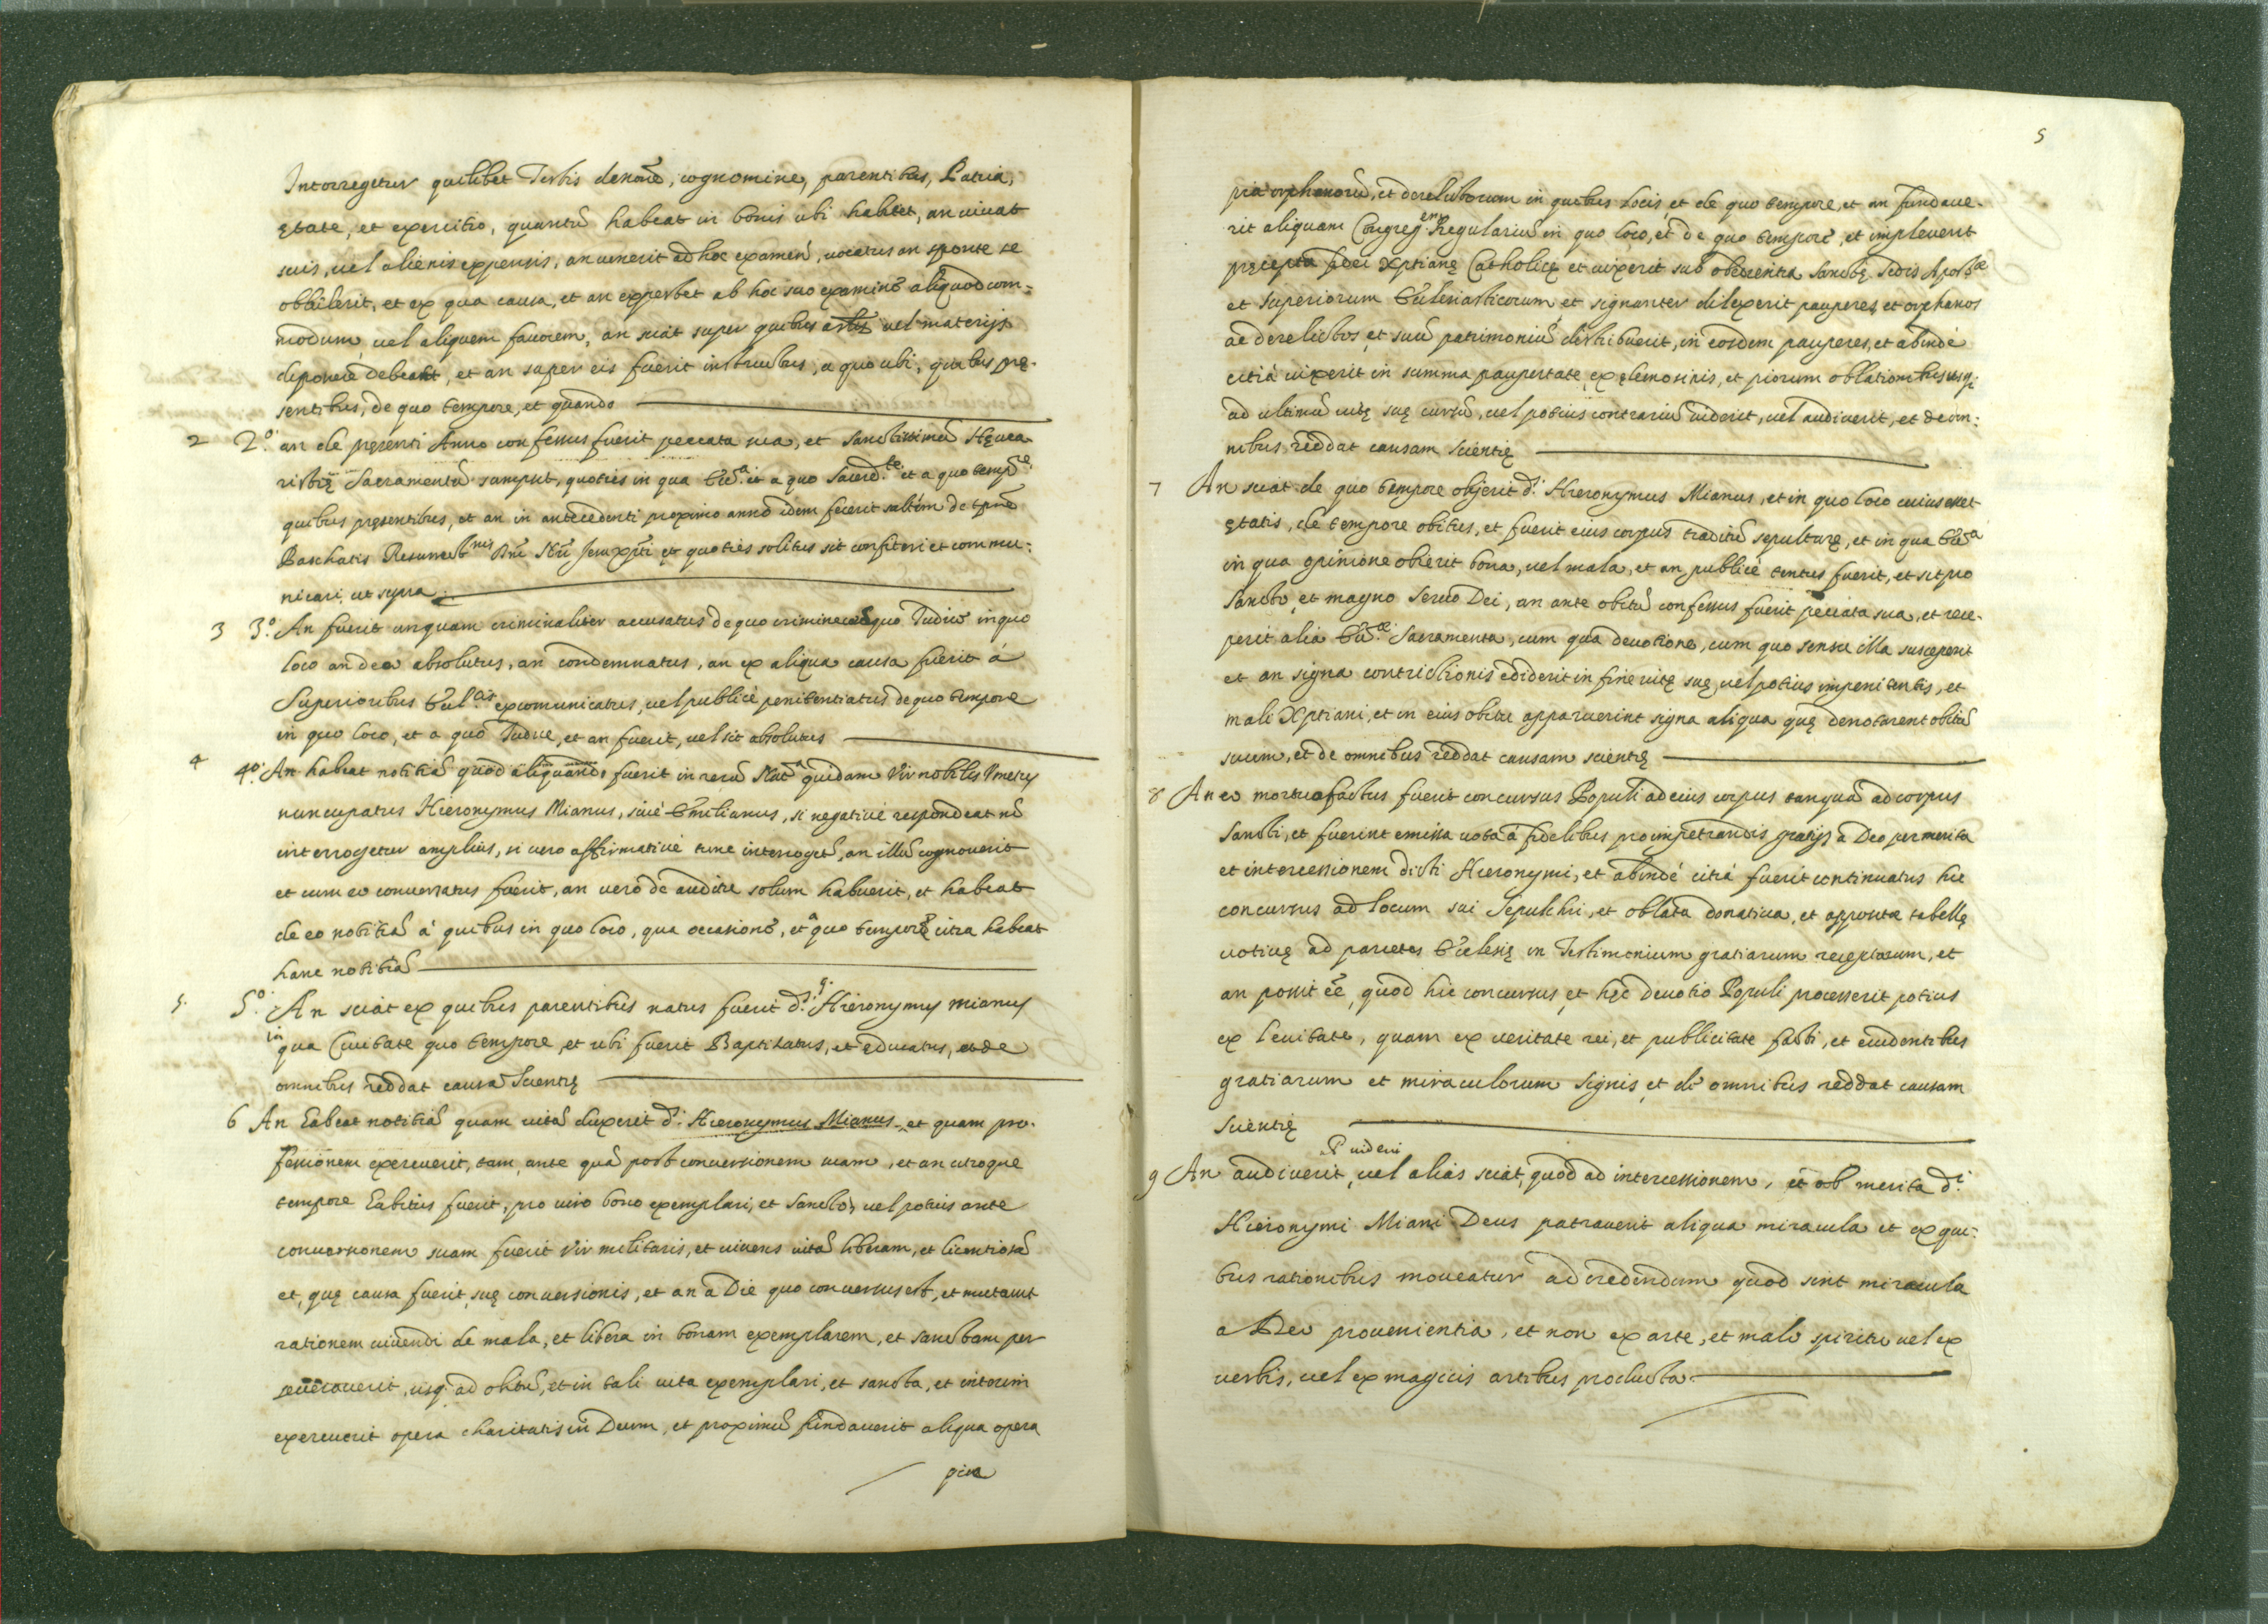 Interrogetur quilibet Testis de noie, cognomine, parentibus, Patria,
ętate, et exercitio, quantũ habeat in bonis ubi habitet, an uiuat
suis, uel alienis expensis, an uenerit ad hoc examen, uocatus an sponte se
obtulerit, et ex qua causa, et an expectet ab hoc suo examine aliquod com=
modum, uel aliquem fauorem, an sciat super quibus artis uel materijs
deponere debeat, et an super eis fuerit instructus, a quo ubi, quibus prę-
sentibus, de quo tempore, et quando
2 2.º an de pręsenti Anno confessus fuerit peccata sua, et Sanctissimũ Hęuca
ristię Sacramentũ sumpsit, quoties in qua Ecc.ª et a quo Sacerd.te et a quo temp.re
quibus pręsentibus, et an in antecedenti proximo anno idem fecerit saltem de tpre
Paschatis Resurrect.nis Dni Nri Jesu Xpti et quoties solitus sit confiteri et commu:
nicari, ut supra
3 3.º An fuerit unquam criminaliter accusatus de quo crimine a quo Judice in quo
loco an de eo absolutus, an condemnatus, an ex aliqua causa fuerit à
Superioribus Eccl.cis excomunicatus, uel publicè penitentiatus de quo tempore
in quo loco, et a quo Judice, et an fuerit, uel sit absolutus
4 4.º An habeat notitiã quod aliquando fuerit in rerũ Nat.ª quidam Vir nobilis Venetus
nuncupatus Hieronymus Mianus, siue Emilianus, si negatiuè respondeat nõ
interrogetur amplius, si uero affirmatiuè tunc interrogetur, an illũ cognouerit
et cum eo conuersatus fuerit, an uerò de auditu solum habuerit, et habeat
de eo notitiã à quibus in quo loco, qua occasione, et à quo tempore citra habeat
hanc notitiã
5. 5.º An sciat ex quibus parentibus natus fuerit d.s q. Hieronymus Mianus
in qua Ciuitate quo tempore, et ubi fuerit Baptizatus, et educatus, et de
omnibus reddat causã Scientię
6 An habeat notitiã quam uitã duxerit d.s Hieronymus Mianus, et quam pro-
fessionem exercuerit, tam ante quã post conuersionem suam, et an utroque
tempore habitus fuerit, pro uiro bono exemplari, et Sancto, uel potius ante
conuersionem suam fuerit Vir militaris, et uiuens uitã liberam, et licentiosã
et, quę causa fuerit, suę conuersionis, et an a Die quo conuersus est, et mutauit
rationem uiuendi de mala, et libera in bonam exemplarem, et sanctam per
seuerauerit, usq. ad obitũ, et in tali uita exemplari, et sancta, et interim
exercuerit opera charitatis in Deum, et proximũ fundauerit aliqua opera
pia
5
pia orphanorũ, et derelictorum in quibus locis, et de quo tempore, et an fundaue-
rit aliquam Congreg.em Regulariũ in quo loco, et de quo tempore, et impleuerit
pręcepta fidei Xptianę Catholicę et uixerit sub obedientia Sanctę Sedis Apost.cæ
et Superiorum Ecclesiasticorum et signanter dilexerit pauperes et orphanos
ac derelictos, et suũ patrimoniũ distribuerit, in eosdem pauperes, et abindè
citrà uixerit in summa paupertate, ex elemosinis, et piorum oblationibus usq.
ad ultimũ uitę suę cursũ, uel potius contrariũ uiderit, uel audiuerit, et de om:
nibus reddat causam scientię
7 An sciat de quo tempore obierit d.s Hieronymus Mianus, et in quo loco cuius esset
ętatis, de tempore obitus, et fuerit eius corpus traditũ sepulturę, et in qua Ecc.ª
in qua opinione obierit bona, uel mala, et an publicè tentus fuerit, et sit pro
Sancto, et magno Seruo Dei, an ante obitũ confessus fuerit peccata sua, et rece-
perit alia Ecc.æ Sacramenta, cum qua deuotione, cum quo sensu illa susceperit
et an signa contrictionis ediderit in fine uitę suę, uel potius impenitentis, et
mali Xptiani, et in eius obitu apparuerint signa aliqua quę denotarent obitũ
suum, et de omnibus reddat causam scientię
8 An eo mortuo factus fuerit concursus Populi ad eius corpus tanquã ad corpus
Sancti, et fuerint emissa uota à fidelibus pro impetrandis gratijs à Deo per merita
et intercessionem dicti Hieronymi, et abindè citrà fuerit continuatus hic
concursus ad locum sui Sepulchri, et oblata donatiua, et apposita tabellę
uotiuę ad parietes Ecclesię in Testimonium gratiarum receptarum, et
an possit ẽe, quod hic concursus, et hęc deuotio Populi processerit potius
ex leuitate, quam ex ueritate rei, et publicitate facti, et euidentibus
gratiarum et miraculorum signis, et de omnibus reddat causam
scientię
uiderit
9 An audiuerit, uel aliàs sciat, quod ad intercessionem, et ob merita d.i
Hieronymi Miani Deus patrauerit aliqua miracula et ex qui:
bus rationibus moueatur ad credendum quod sint miracula
a Deo prouenientia, et non ex arte, et malo spiritu uel ex
uerbis, uel ex magicis artibus producta